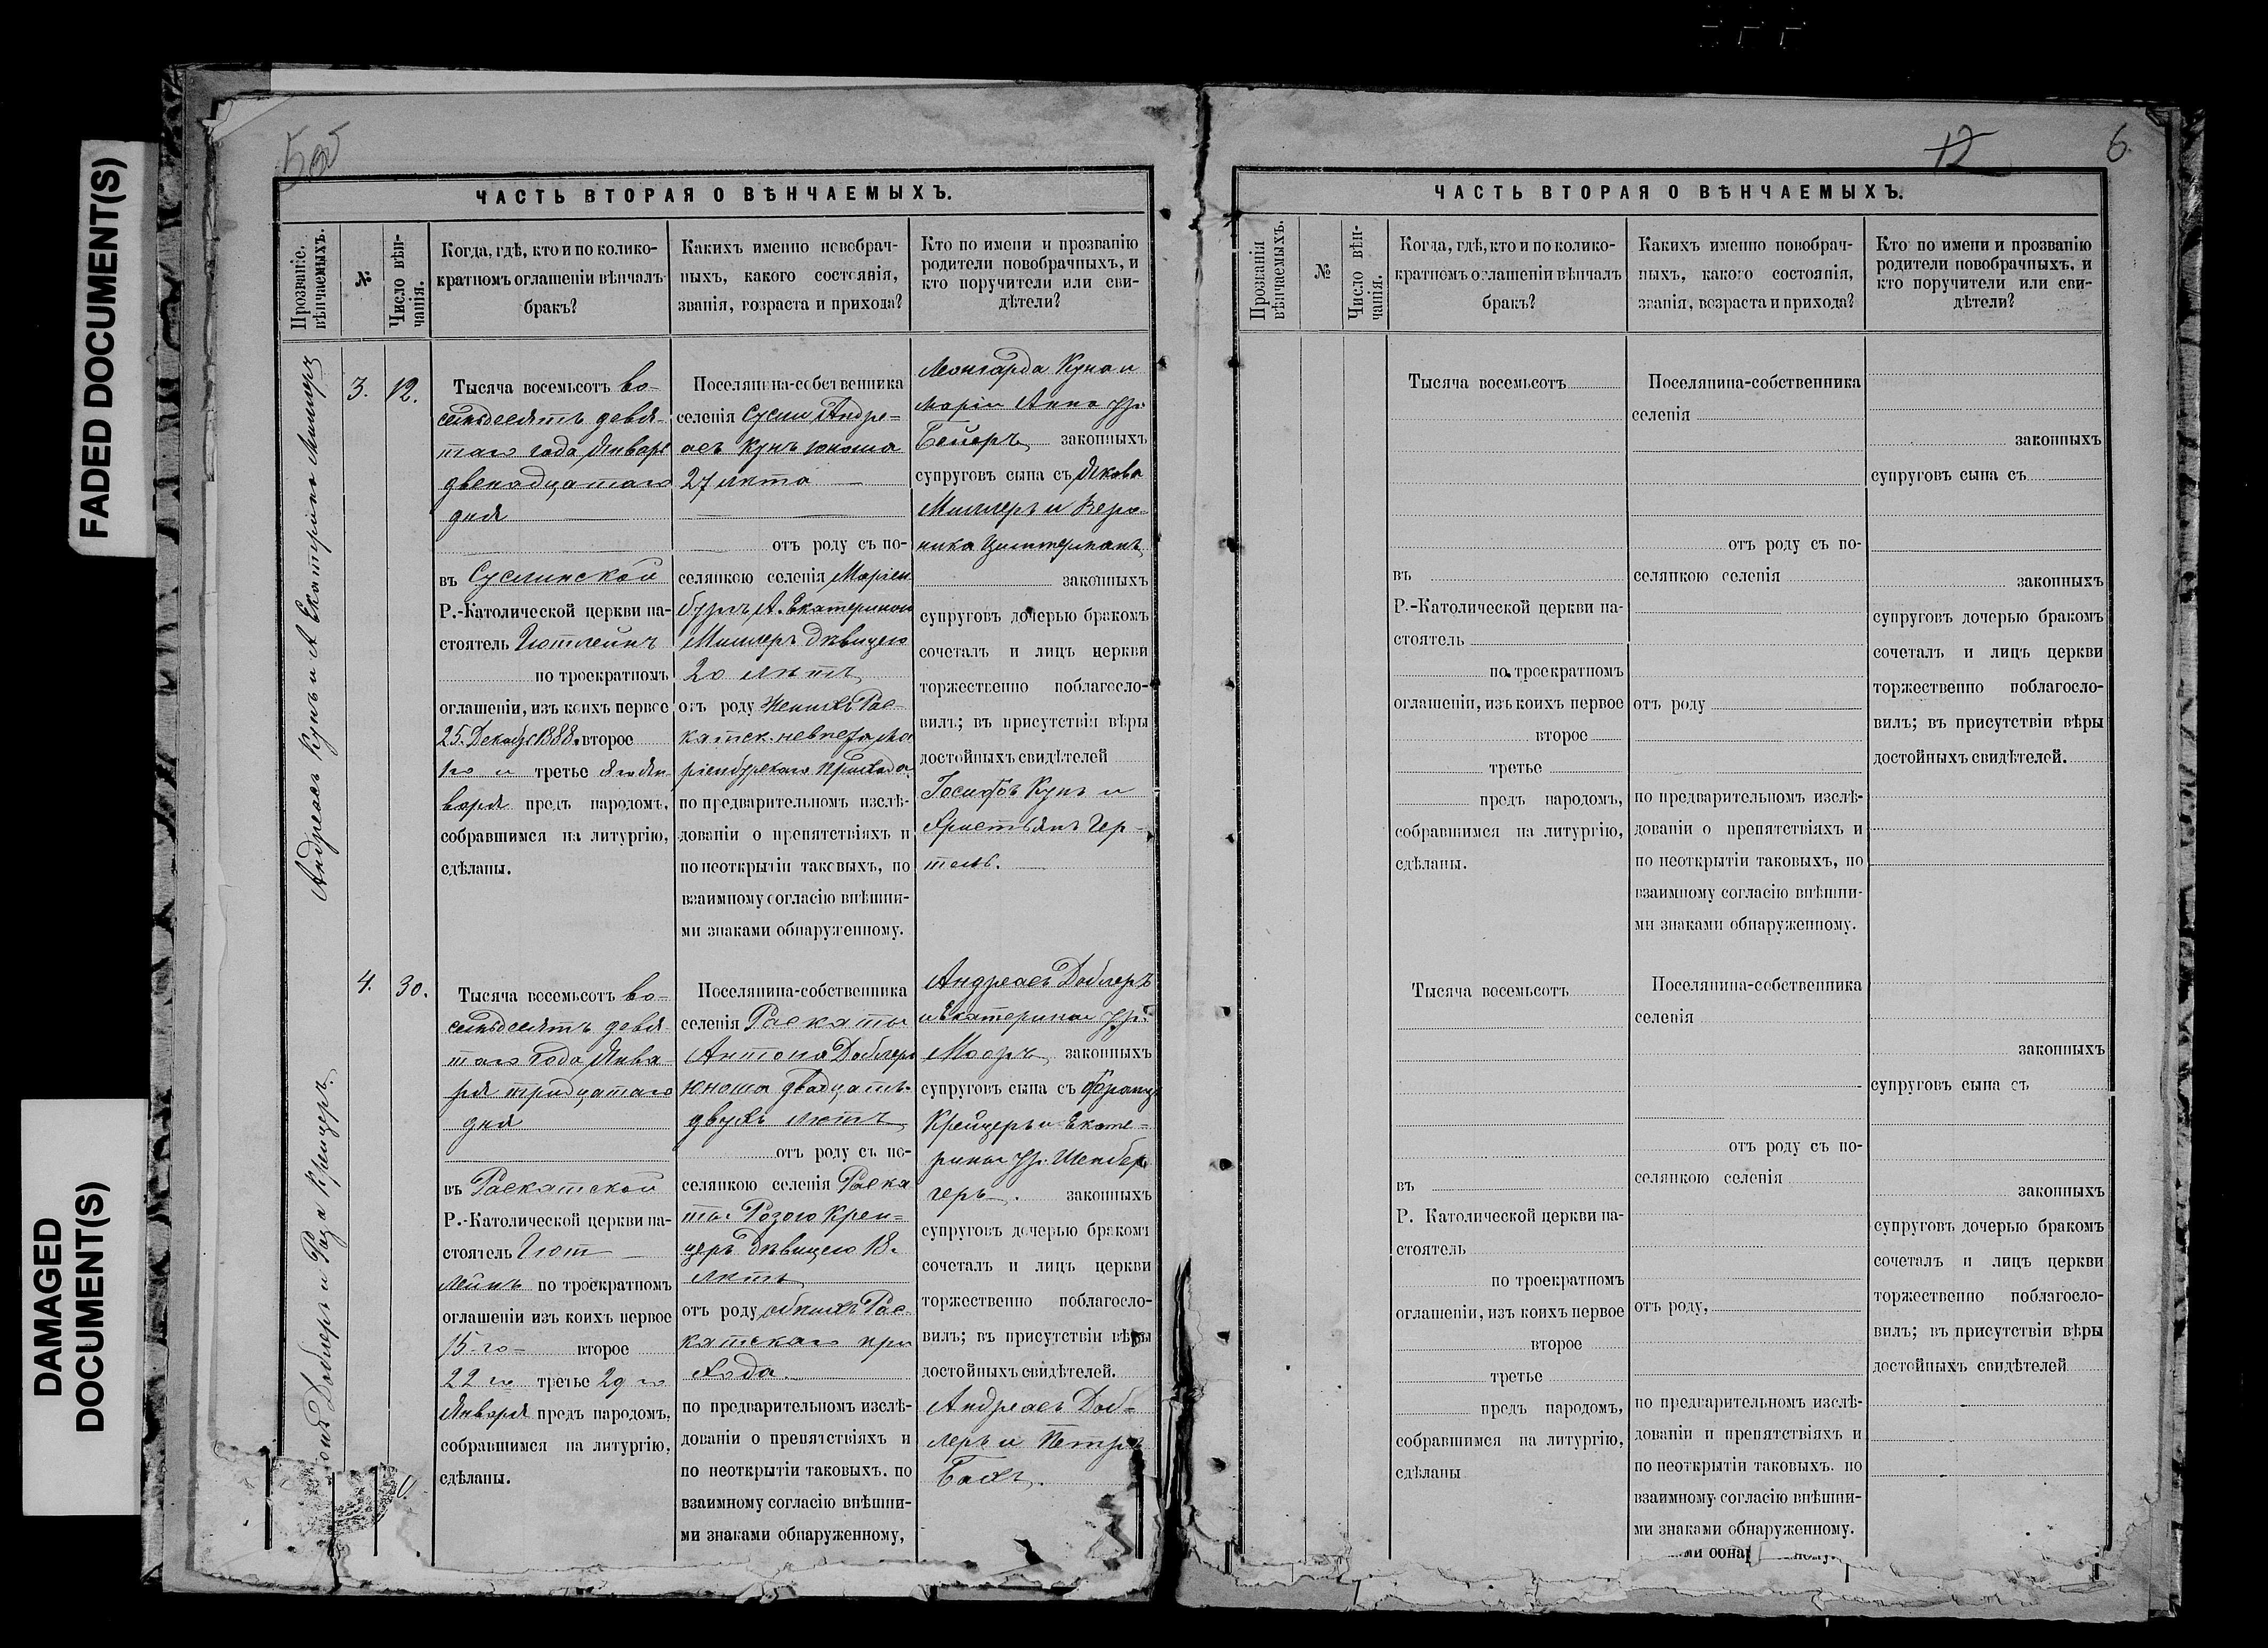 FADED DOCUMENT(S)
DAMAGED
DOCUMENT(S)
ЧАСТЬ ВТОРАЯ О ВѢНЧАЕМЫХЪ.
Прозваніе.
вѣнчаемыхъ.
№
Число вѣн-
чанія.
Когда, гдѣ, кто и по колико-
кратномъ оглашеніи вѣнчалъ
бракъ?
Какихъ именно новобрач-
ныхъ, какого состоянія,
званія, возраста и прихода?
Кто по имени и прозванію
родители новобрачныхъ, и
кто поручители или сви-
дѣтели?
Андреасъ Кунъ и А Екатерина Миллеръ
3.
12.
Тысяча восемьсотъ во-
семьдесятъ девя-
таго года Января
двенадцатаго
дня
въ Суслинской
Р.-Католической церкви на-
стоятель Гютлейнъ
по троекратномъ
оглашеніи, изъ коихъ первое
25. Декабр 1888. второе
1го и третье 6го Ян-
варя предъ народомъ,
собравшимся на литургію,
сдѣланы.
Поселянина-собственника
селенія Суслы Андре-
асъ Кунъ юноша
27 лѣта
отъ роду съ по-
селянкою селенія Маріен
бургъ А. Екатериною
Миллеръ дѣвицею
20 лѣтъ
отъ роду женихъ Рас-
катск. невеста Ма
ріенбургскаго прихода
по предварительномъ изслѣ-
дованіи о препятствіяхъ и
по неоткрытіи таковыхъ, по
взаимному согласію внѣшни-
ми знаками обнаруженному.
Леонгарда Куна и
Маріи Анна ур.
Бейеръ законныхъ
супруговъ сына съ Якова
Миллеръ и Веро
ника Циммерманъ
законныхъ
супруговъ дочерью бракомъ
сочеталъ и лицъ церкви
торжественно поблагосло-
вилъ; въ присутствіи вѣры
достойныхъ свидѣтелей
Іосифъ Кунъ и
Христьянъ Гер-
тель.
Доблеръ и Роза Крейцеръ.
4.
30.
Тысяча восемьсотъ во-
семьдесятъ девя
таго года Янва-
ря тридцатаго
дня
въ Раскатской
Р.-Католической церкви на-
стоятель Гют
лейнъ по троекратномъ
оглашеніи изъ коихъ первое
15-го- второе
22 го третье 29 го
Января предъ народомъ,
собравшимся на литургію,
сдѣланы.
Поселянина-собственника
селенія Раскаты
Антона Доблеръ
юноша двадцать-
двухъ лѣтъ
отъ роду съ по-
селянкою селенія Раска
ты Розою Креи-
церъ дѣвицею 18.
лѣтъ
отъ роду обоихъ Рас
катскаго при
хода
по предварительномъ изслѣ-
дованіи о препятствіяхъ и
по неоткрытіи таковыхъ. по
взаимному согласію внѣшни-
ми знаками обнаруженному,
Андреасъ Доблеръ
и Екатерины ур.
Мооръ законныхъ
супруговъ сына съ Францъ
Крейцеръ и Екате-
рины ур. Шенбер
геръ. законныхъ
супруговъ дочерью бракомъ
сочеталъ и лицъ церкви
торжественно поблагосло-
вилъ; въ присутствіи вѣры
достойныхъ свидѣтелей.
Андреасъ Доб-
леръ и Петръ
Бахъ.
12
6.
ЧАСТЬ ВТОРАЯ О ВѢНЧАЕМЫХЪ.
Прозванія
вѣнчаемыхъ.
№
Число вѣн-
чанія.
Когда, гдѣ, кто и по колико-
кратномъ оглашеніи вѣнчалъ
бракъ?
Какихъ именно новобрач-
ныхъ, какого состоянія,
званія, возраста и прихода?
Кто по имени и прозванію
родители новобрачныхъ, и
кто поручители или сви-
дѣтели?
Тысяча восемьсотъ
въ
Р.-Католической церкви на-
стоятель
по троекратномъ
оглашеніи, изъ коихъ первое
второе
третье
предъ народомъ,
собравшимся на литургію,
сдѣланы.
Поселянина-собственника
селенія
отъ роду съ по-
селянкою селенія
отъ роду
по предварительномъ изслѣ-
дованіи о препятствіяхъ и
по неоткрытіи таковыхъ, по
взаимному согласію внѣшни-
ми знаками обнаруженному.
законныхъ
супруговъ сына съ
законныхъ
супруговъ дочерью бракомъ
сочеталъ и лицъ церкви
торжественно поблагосло-
вилъ; въ присутствіи вѣры
достойныхъ свидѣтелей.
Тысяча восемьсотъ
въ
Р. Католической церкви на-
стоятель
по троекратномъ
оглашеніи, изъ коихъ первое
второе
третье
предъ народомъ,
собравшимся на литургію,
сдѣланы
Поселянина-собственника
селенія
отъ роду съ по-
селянкою селенія
отъ роду,
по предварительномъ изслѣ-
дованіи и препятствіяхъ и
по неоткрытіи таковыхъ. по
взаимному согласію внѣшни-
ми знаками обнаруженному.
законныхъ
супруговъ сына съ
законныхъ
супруговъ дочерью бракомъ
сочеталъ и лицъ церкви
торжественно поблагосло-
вилъ; въ присутствіи вѣры
достойныхъ свидѣтелей